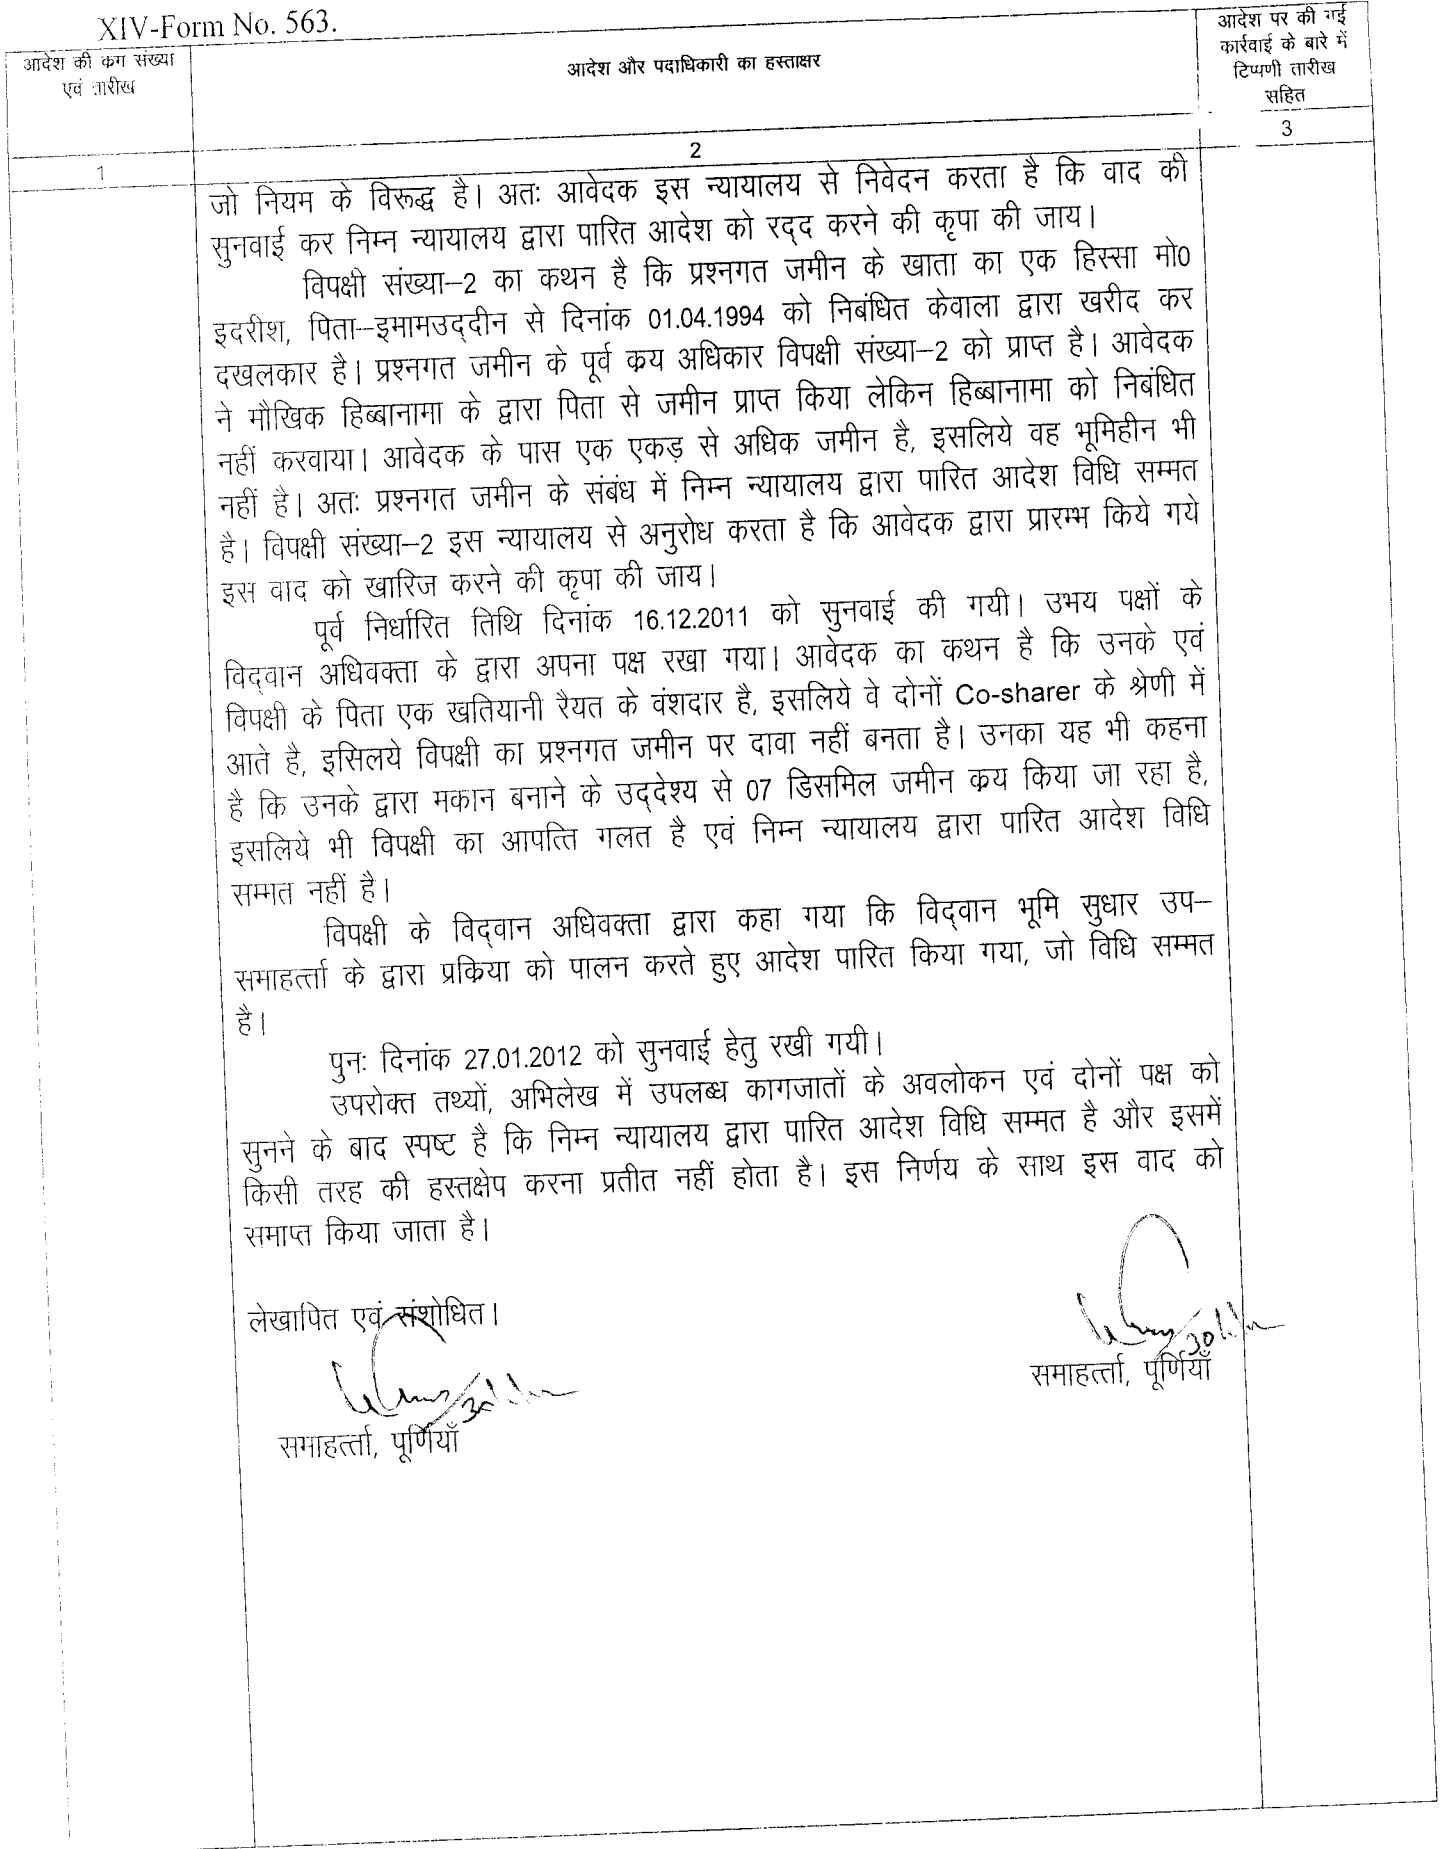 XIV-Form No. 563.
आदेश की कम संख्या
एवं तारीख
आदेश और पदाधिकारी का हस्ताक्षर
आदेश पर की गई
कार्रवाई के बारे में
टिप्पणी तारीख
सहित
1
2
3
जो नियम के विरूद्ध है। अतः आवेदक इस न्यायालय से निवेदन करता है कि वाद की
सुनवाई कर निम्न न्यायालय द्वारा पारित आदेश को रद्द करने की कृपा की जाय।
विपक्षी संख्या–2 का कथन है कि प्रश्नगत जमीन के खाता का एक हिस्सा मो0
इदरीश, पिता–इमामउद्दीन से दिनांक 01.04.1994 को निबंधित केवाला द्वारा खरीद कर
दखलकार है। प्रश्नगत जमीन के पूर्व कय अधिकार विपक्षी संख्या–2 को प्राप्त है। आवेदक
ने मौखिक हिब्बानामा के द्वारा पिता से जमीन प्राप्त किया लेकिन हिब्बानामा को निबंधित
नहीं करवाया। आवेदक के पास एक एकड़ से अधिक जमीन है, इसलिये वह भूमिहीन भी
नहीं है। अतः प्रश्नगत जमीन के संबंध में निम्न न्यायालय द्वारा पारित आदेश विधि सम्मत
है। विपक्षी संख्या–2 इस न्यायालय से अनुरोध करता है कि आवेदक द्वारा प्रारम्भ किये गये
इस वाद को खारिज करने की कृपा की जाय।
पूर्व निर्धारित तिथि दिनांक 16.12.2011 को सुनवाई की गयी। उभय पक्षों के
विद्वान अधिवक्ता के द्वारा अपना पक्ष रखा गया। आवेदक का कथन है कि उनके एवं
विपक्षी के पिता एक खतियानी रैयत के वंशदार है, इसलिये वे दोनों Co-sharer के श्रेणी में
आते है, इसिलये विपक्षी का प्रश्नगत जमीन पर दावा नहीं बनता है। उनका यह भी कहना
है कि उनके द्वारा मकान बनाने के उद्देश्य से 07 डिसमिल जमीन कय किया जा रहा है,
इसलिये भी विपक्षी का आपत्ति गलत है एवं निम्न न्यायालय द्वारा पारित आदेश विधि
सम्मत नहीं है।
विपक्षी के विद्वान अधिवक्ता द्वारा कहा गया कि विद्वान भूमि सुधार उप–
समाहर्त्ता के द्वारा प्रकिया को पालन करते हुए आदेश पारित किया गया, जो विधि सम्मत
है।
पुनः दिनांक 27.01.2012 को सुनवाई हेतु रखी गयी।
उपरोक्त तथ्यों, अभिलेख में उपलब्ध कागजातों के अवलोकन एवं दोनों पक्ष को
सुनने के बाद स्पष्ट है कि निम्न न्यायालय द्वारा पारित आदेश विधि सम्मत है और इसमें
किसी तरह की हस्तक्षेप करना प्रतीत नहीं होता है। इस निर्णय के साथ इस वाद को
समाप्त किया जाता है।
लेखापित एवं संशोधित।
समाहर्त्ता, पूर्णियाँ
समाहर्त्ता, पूर्णियाँ